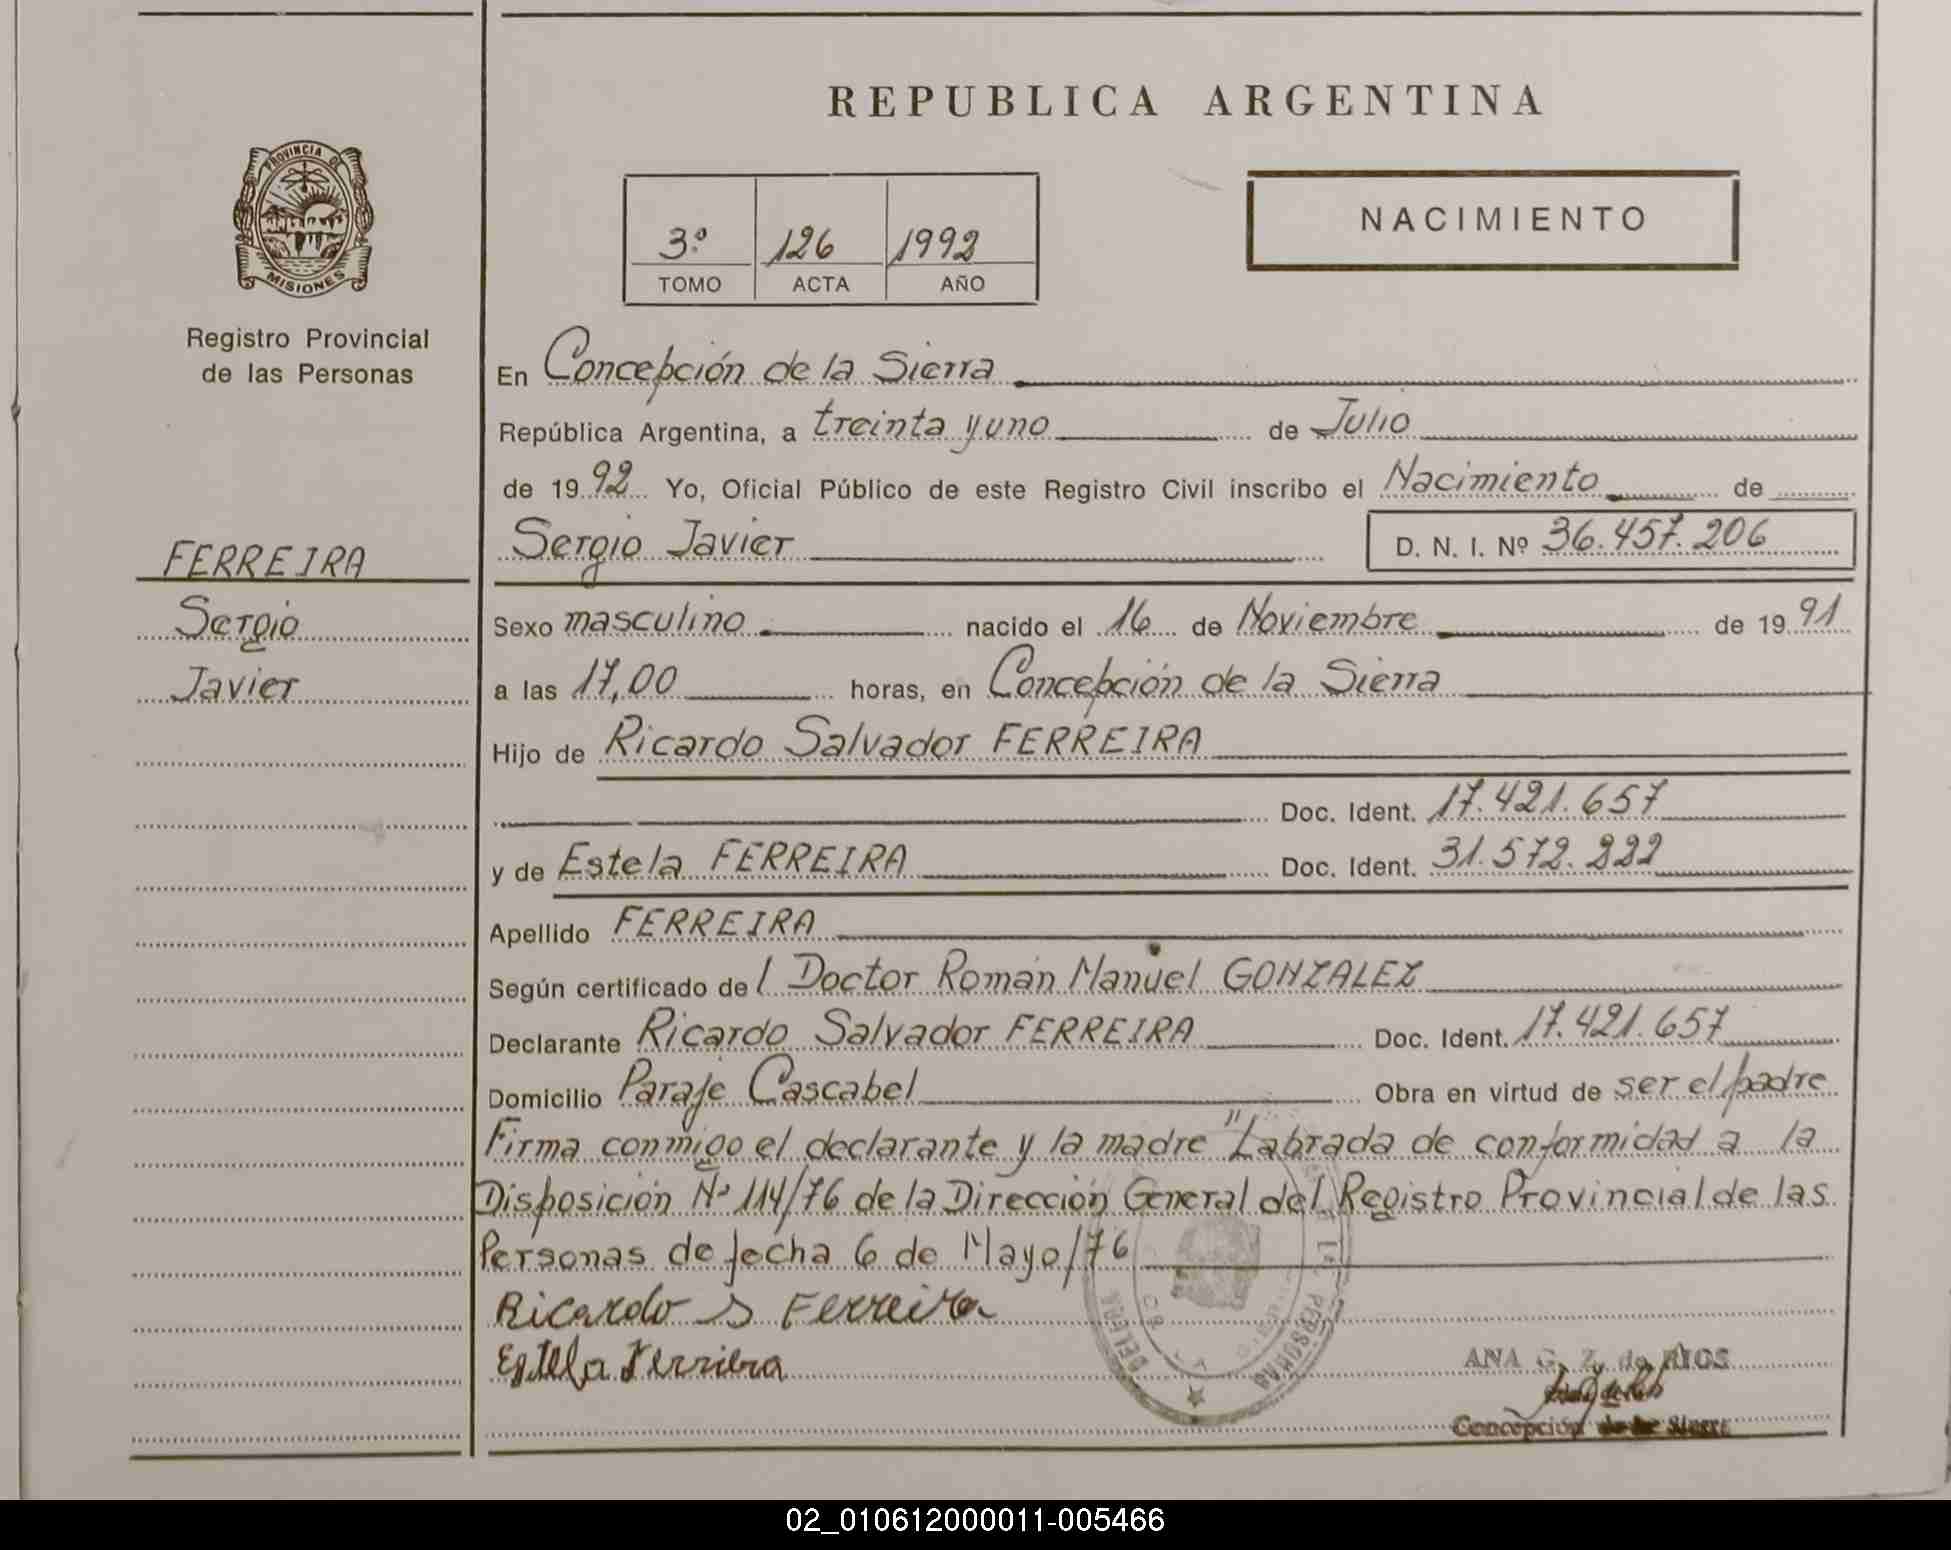 REPUBLICA ARGENTINA
PROVINCIA DE
MISIONES
Registro Provincial
de las Personas
3º 126 1992
TOMO ACTA AÑO
NACIMIENTO
En Concepción de la Sierra
República Argentina, a treinta y uno de Julio
de 1992 Yo, Oficial Público de este Registro Civil inscribo el Nacimiento de
Sergio Javier D. N. I. Nº 36.457.206
FERREIRA
Sergio
Javier
Sexo masculino nacido el 16 de Noviembre de 1991
a las 17,00 horas, en Concepción de la Sierra
Hijo de Ricardo Salvador FERREIRA
Doc. Ident. 17.421.657
y de Estela FERREIRA Doc. Ident. 31.572.222
Apellido FERREIRA
Según certificado del Doctor Román Manuel GONZALEZ
Declarante Ricardo Salvador FERREIRA Doc. Ident. 17.421.657
Domicilio Paraje Cascabel Obra en virtud de ser el padre
Firma conmigo el declarante y la madre "Labrada de conformidad a la
Disposición Nº 114/76 de la Dirección General del Registro Provincial de las
Personas de fecha 6 de Mayo/76
Ricardo S Ferreira
Estela Ferriera
ANA G. Z. de RIOS
Concepción de la Sierra
02_010612000011-005466